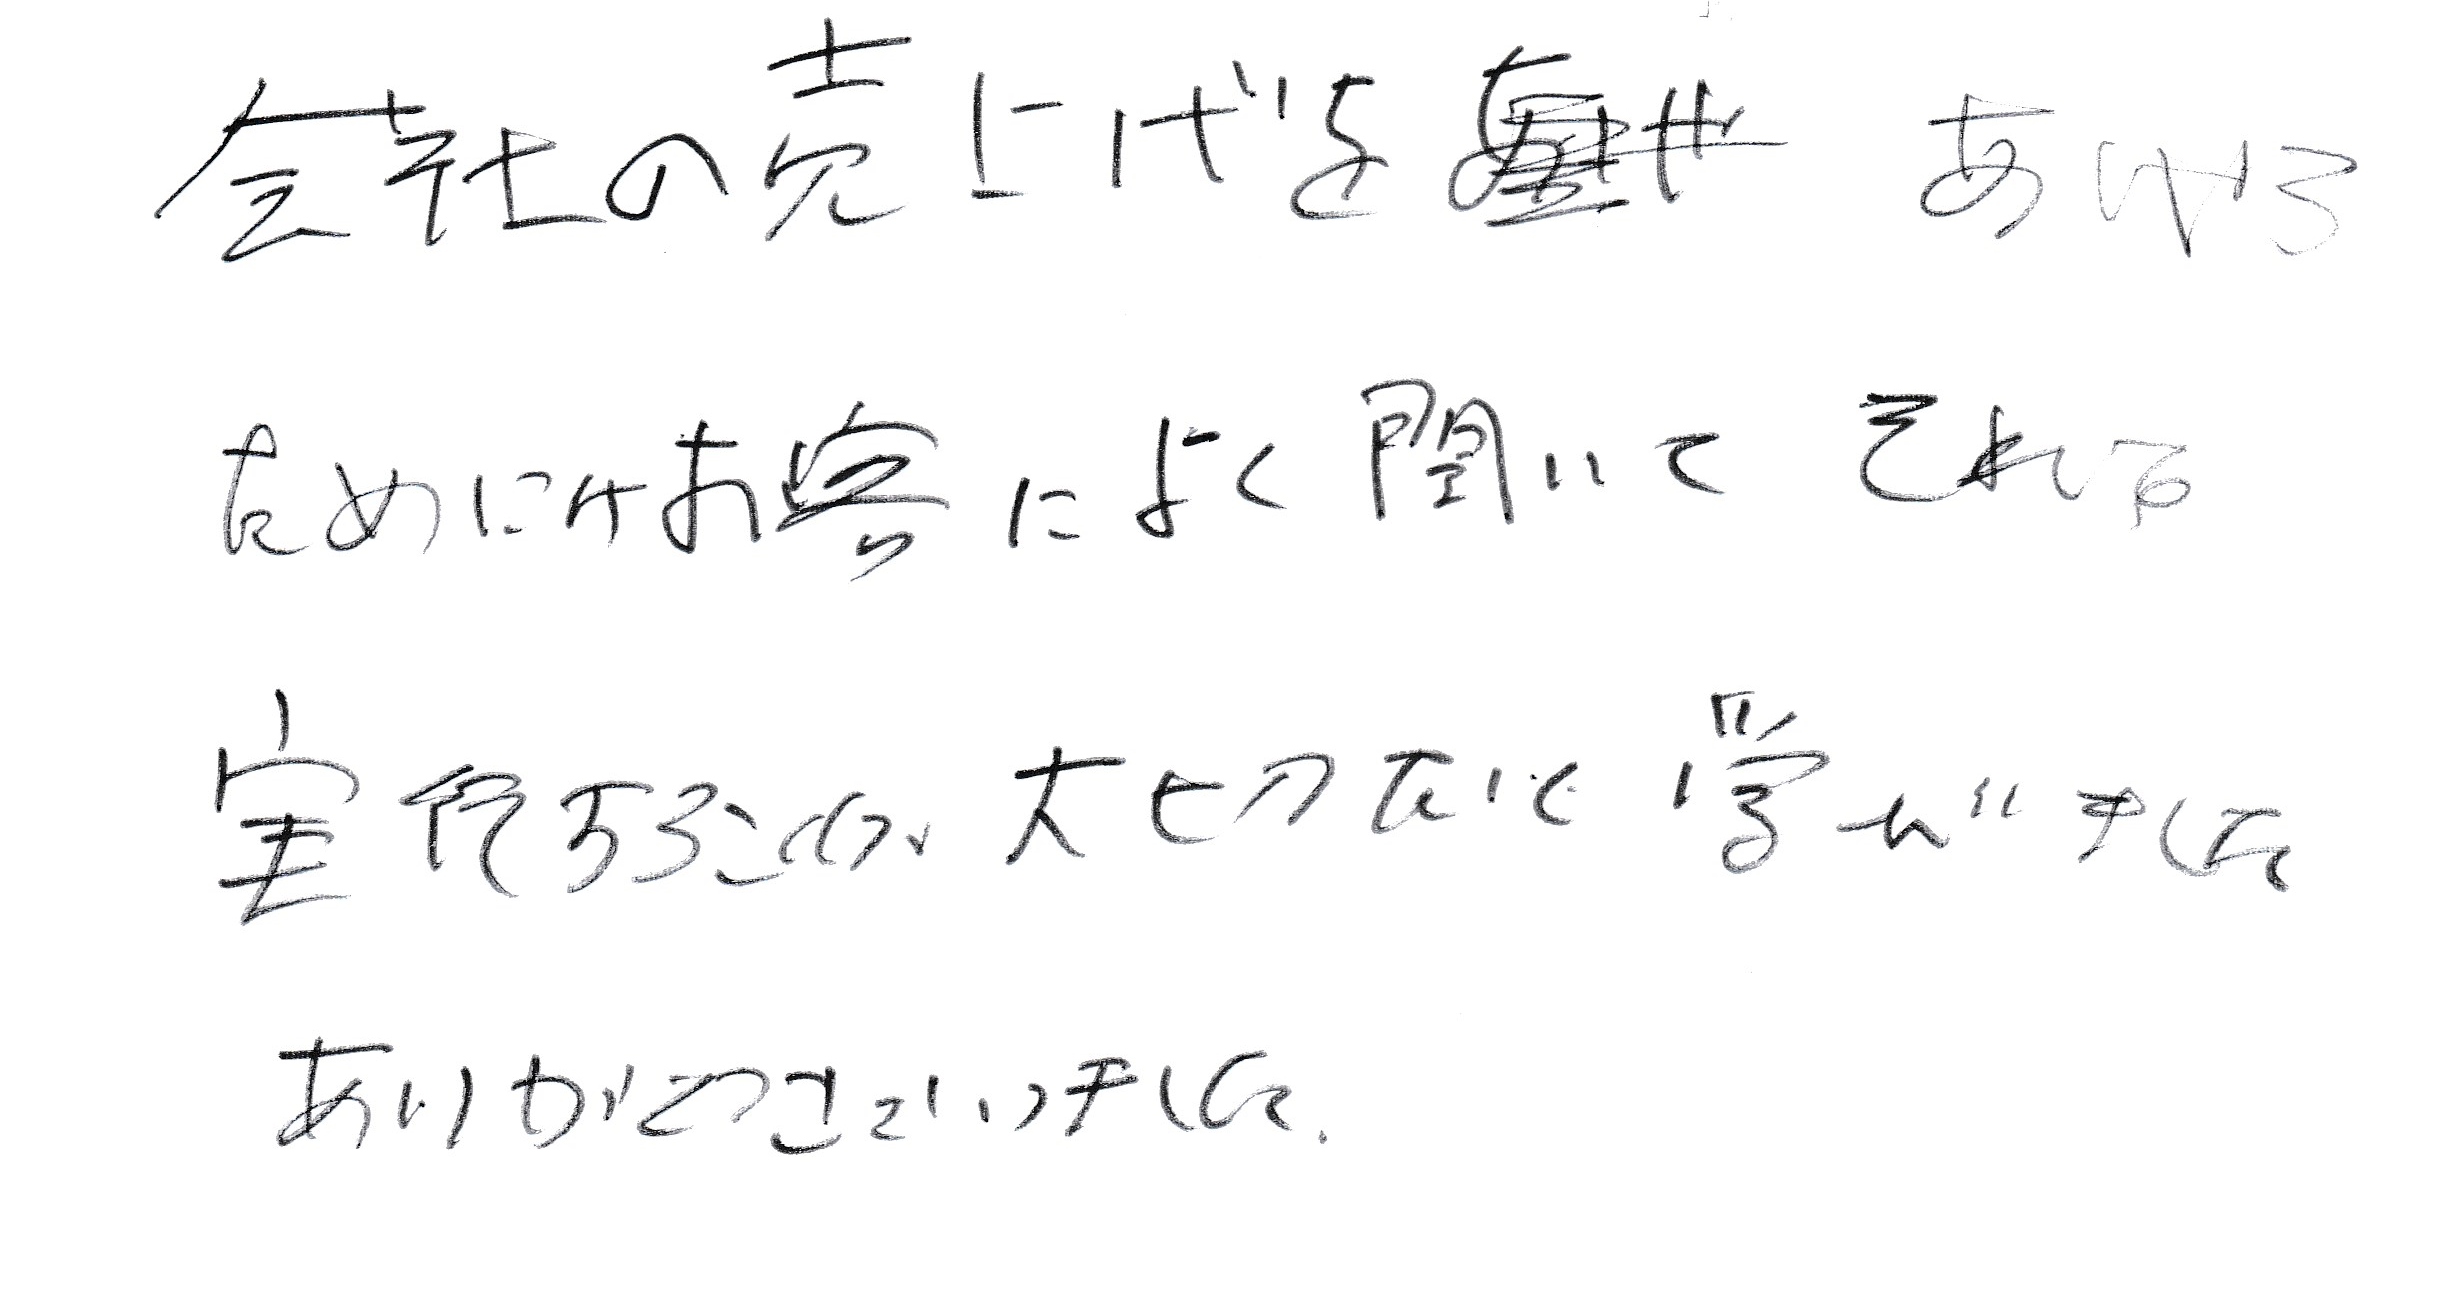 会社の売上げを あげる
ためにはお客によく聞いて それを
実行することが大切だと学びました
ありがとうございました.